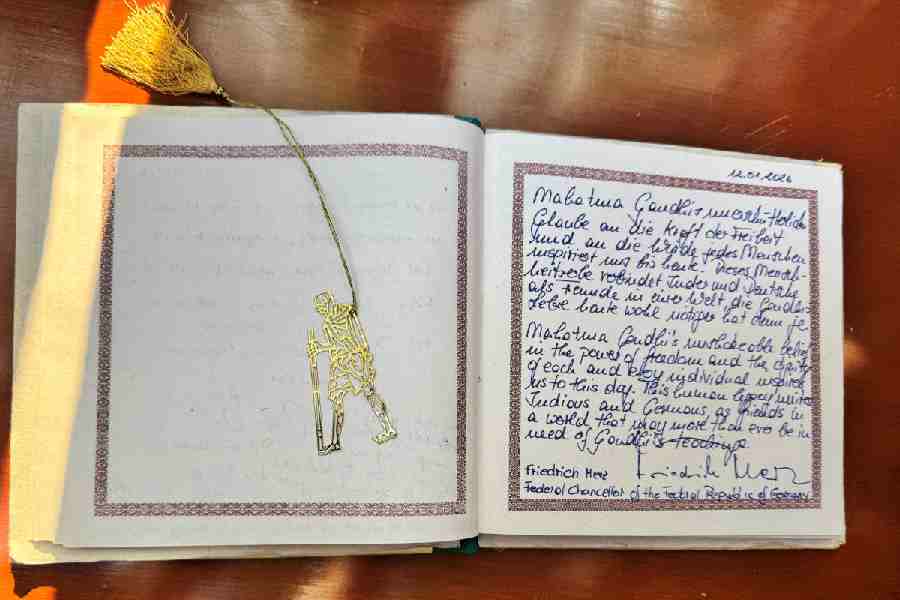 12.01.2026
Mahatma Gandhis unerschütterlicher
Glaube an die Kraft der Freiheit
und an die Würde jedes Menschen
inspiriert uns bis heute. Dieses Mensch-
verbindet Inder und Deutsche
als Freunde in einer Welt, die Gandhis
heute wohl nötiger hat denn je.
Mahatma Gandhi's unshakeable belief
in the power of freedom and the dignity
of each and every individual inspires
us to this day. This human legacy unites
Indians and Germans as friends in
a world that may more than ever be in
need of Gandhi's teachings
Friedrich Merz Friedrich Merz
Federal Chancellor of the Federal Republic of Germany